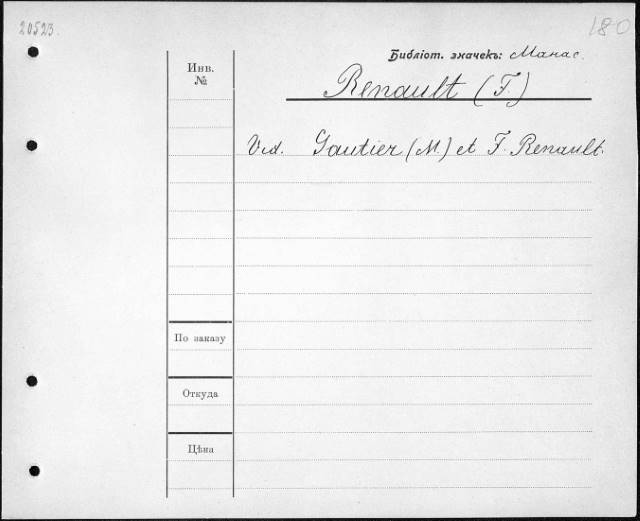 20523.
180
Библіот. значекъ: Манас.
Инв.
№
Renault (F.)
Vid. Gautier (M.) et F. Renault.
По заказу
Откуда
Цѣна